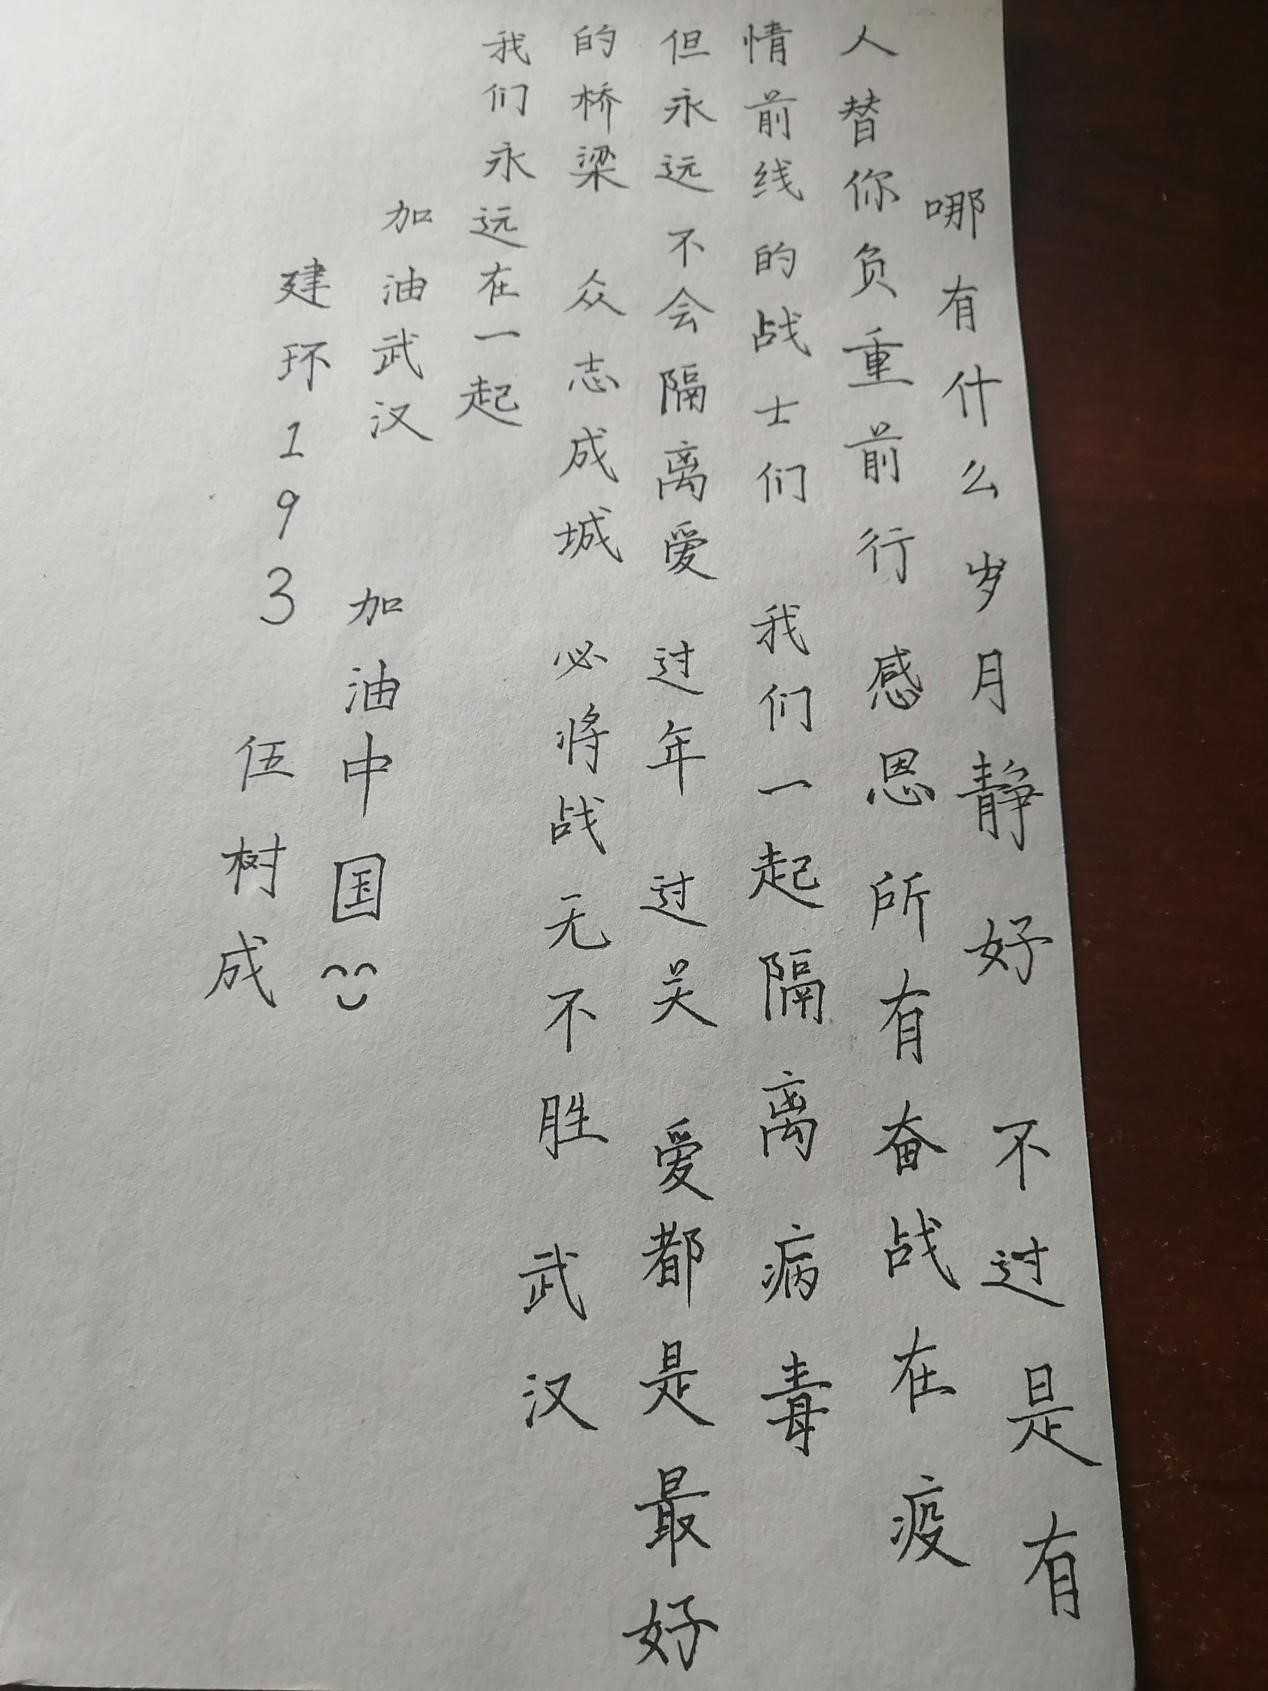 哪有什么岁月静好 不过是有
人替你负重前行 感恩所有奋战在疫
情前线的战士们 我们一起隔离病毒
但永远不会隔离爱 过年过关 爱都是最好
的桥梁 众志成城 必将战无不胜 武汉
我们永远在一起
加油武汉 加油中国
建环193 伍树成